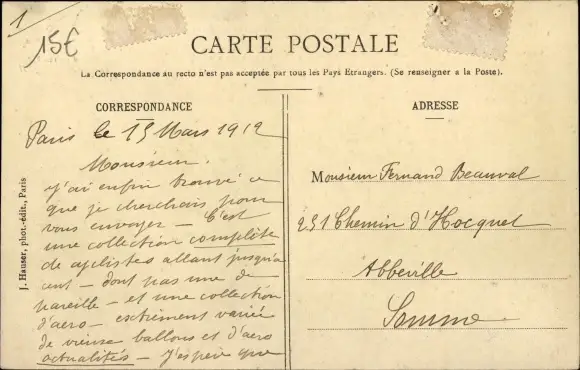 1
15€
CARTE POSTALE
La Correspondance au recto n'est pas acceptée par tous les Pays Etrangers. (Se renseigner a la Poste).
CORRESPONDANCE
Paris le 15 Mars 1912
Monsieur.
J'ai enfin trouvé ce
que je cherchais pour
vous envoyer – C'est
une collection complète
de cyclistes allant jusqu'à
cent – dont pas une de
pareille – et une collection
d'aero – extrèment variée
de vieux ballons et d'aero
actualités – J'espère que
J. Hauser, phot.-édit., Paris
ADRESSE
Monsieur Fernand Beauval
251 Chemin d'Hocquet
Abbeville
Somme